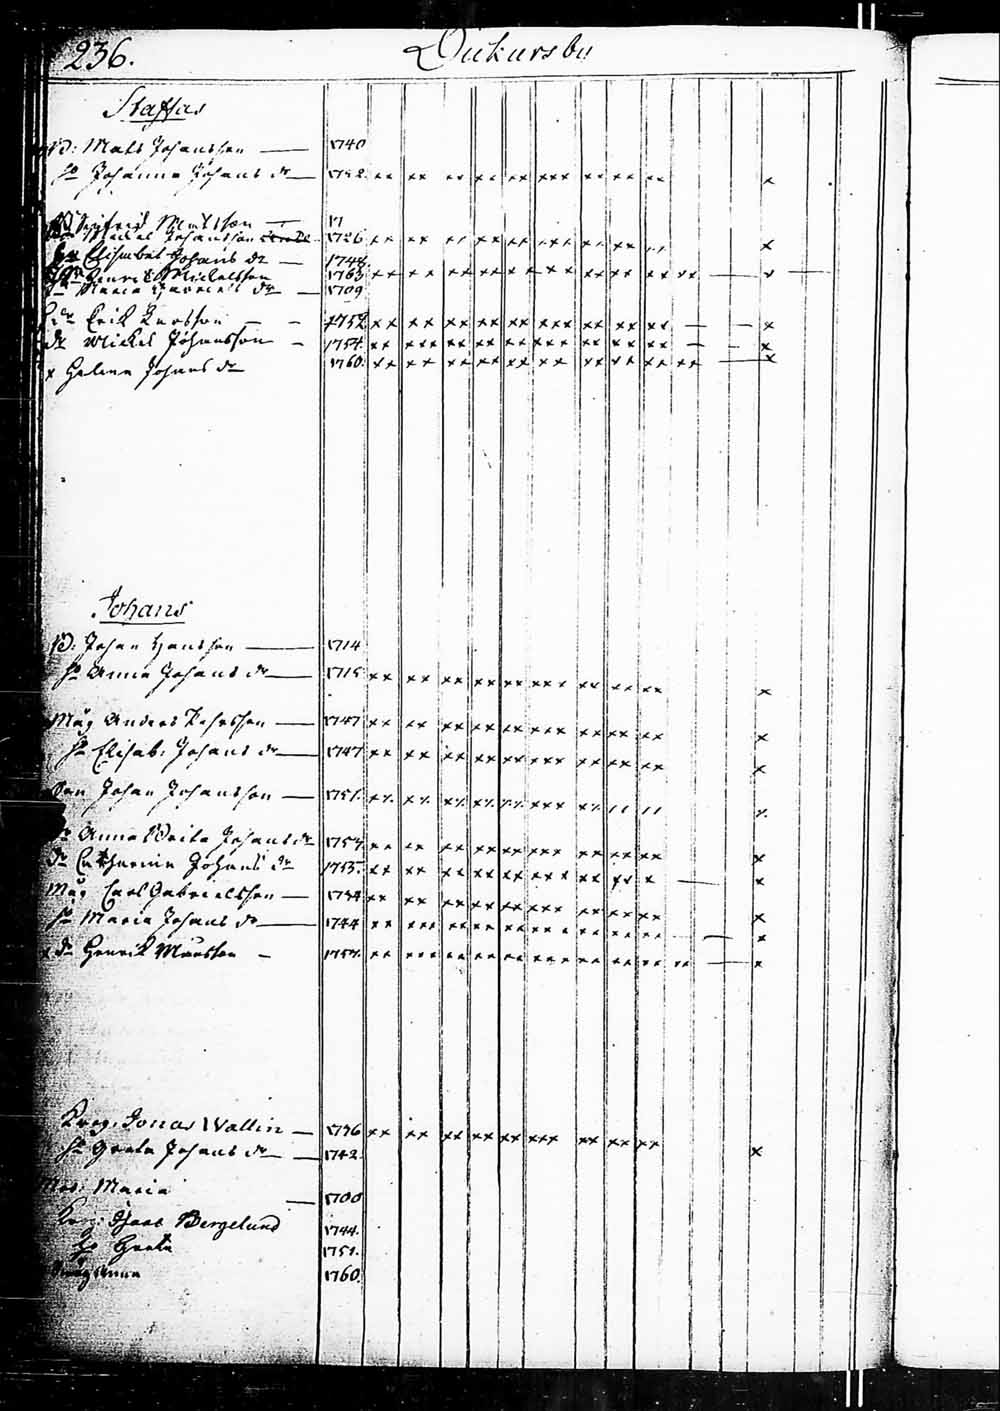 236.
Dickarsby
Staffas
B: Matts Johansson 1740
h. Johanna Johans dr 1752. xx xx xx xx xx xxx xx xx xx x
Sigfrid Mattsson 17
Mickel Johansson 1726 xx xx xx xx xx xxx xx xx x
h. Elisabet Johans dr 1744.
Henrick Mickelsson 1763. xx xx xx xx xx xx xx xx xx xx x
h. Maria dr 1709
dr Erik Larsson 1752 xx xx xx xx xx xxx xx xx xx x
dr Mickel Johansson 1754. xx xx xx xx xx xxx xx xx xx x
x Helena Johans dr 1760. xx xx xx xx xx xx xx xx xx xx x
Johans
B: Johan Hansson 1714
h. Anna Johans dr 1715 xx xx xx xx xx xxx xx xx xx x
Måg Anders 1747 xx xx xx xx xx xxx xx xx xx x
h. Elisab: Johans dr 1747 xx xx xx xx xx xxx xx xx xx x
Son Johan Johansson 1751. x
dr Anna Brita Johans dr 1754. xx xx xx xx xx xxx xx xx xx x
dr Catharina Johans dr 1755. xx xx xx xx xx xxx xx xx x x
Måg Carl Gabrielsson 1734 xx xx xx xx xx xxx xx xx xx x
h. Maria Johans dr 1744 xx xxx xx xx xx xxx xx xx xx x
x dr Henrik Månsson 1757. xx xxx xx xx xx xxx xx xx xx xx x
Kreg. Jonas Wallin 1736 xx xx xx xx xx xxx xx xx xx
h. Greta Johans dr 1742. x
Maria 1700
Bergelund 1744.
h. Greta 1751.
Anna 1760.